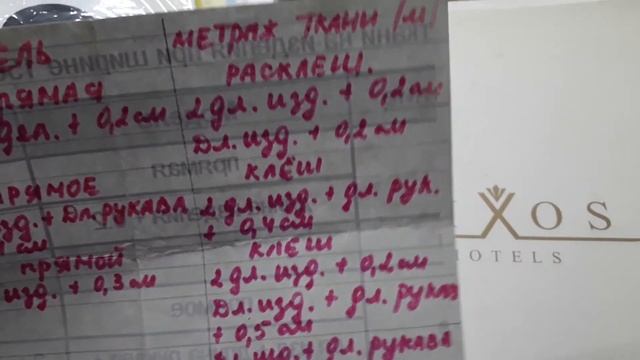 МЕТРАЖ ТКАНИ /М/
ЕЛЬ
РАСКЛЕШ.
РЯМАЯ
2 дл. изд. + 0,2 см
+ 0,2 см
Дл. изд. + 0,2 см
КЛЁШ
ПРЯМОЕ
2 дл. изд. + дл. рук.
изд. + Дл. РУКАВА
+ 0,4 см
см
КЛЕШ
ПРЯМОЙ
2 дл. изд. + 0,2 см
изд. + 0,3 см
Дл. изд. + дл. рукав
+ 0,5 см
+ дл. РУКАВА
XOS
HOTELS